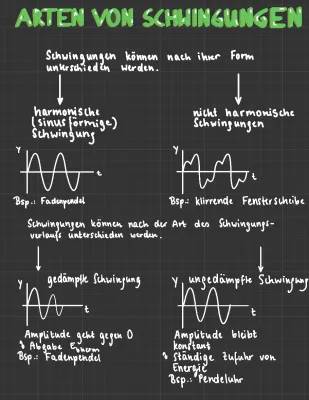 ARTEN VON SCHWINGUNGEN
Schwingungen können nach ihrer Form
unterschieden werden.
harmonische
(sinusförmige)
Schwingung
nicht harmonische
Schwingungen
y
t
y
t
Bsp.: Fadenpendel
Bsp.: klirrende Fensterscheibe
Schwingungen können nach der Art des Schwingungs-
verlaufs unterschieden werden.
gedämpfte Schwingung
ungedämpfte Schwingung
y
t
y
t
Amplitude geht gegen 0
Abgabe Etherm
Bsp.: Fadenpendel
Amplitude bleibt
konstant
Ständige Zufuhr von
Energie
Bsp.: Pendeluhr